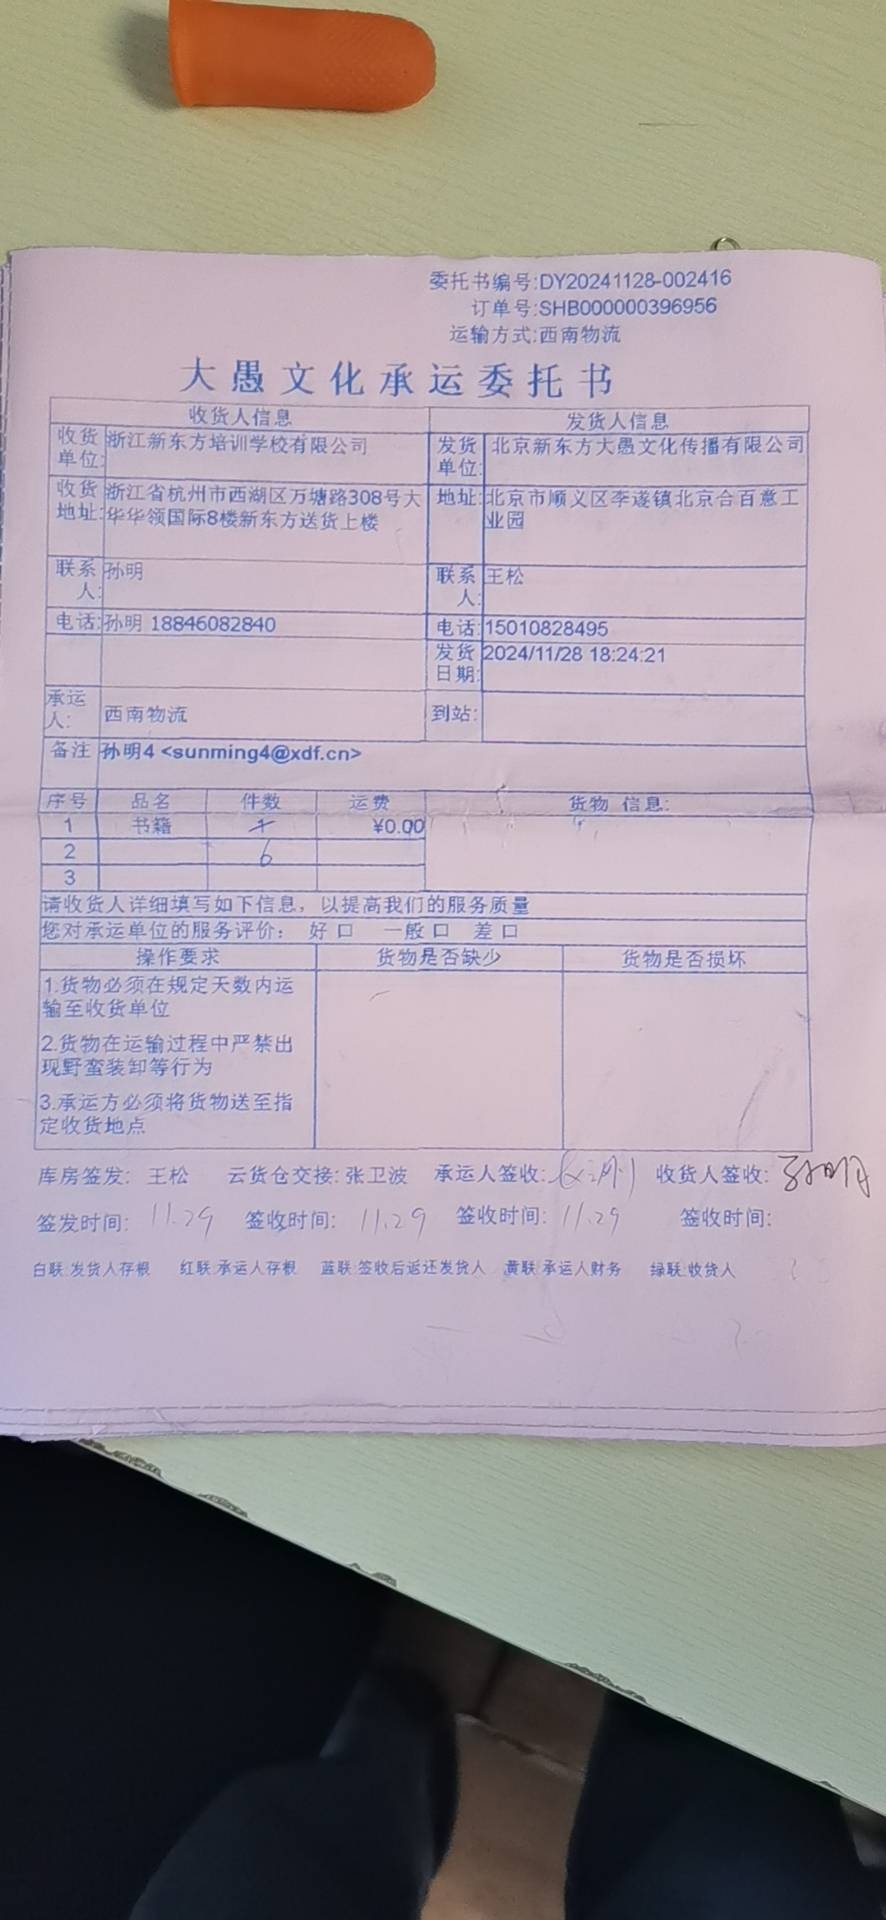 委托书编号:DY20241128-002416
订单号:SHB000000396956
运输方式:西南物流
大愚文化承运委托书
收货人信息 发货人信息
收货单位: 浙江新东方培训学校有限公司 发货单位: 北京新东方大愚文化传播有限公司
收货地址: 浙江省杭州市西湖区万塘路308号大 地址: 北京市顺义区李遂镇北京合百意工
华华领国际8楼新东方送货上楼 业园
联系人: 孙明 联系人: 王松
电话: 孙明 18846082840 电话: 15010828495
发货日期: 2024/11/28 18:24:21
承运人: 西南物流 到站:
备注 孙明4 <sunming4@xdf.cn>
序号 品名 件数 运费 货物 信息:
1 书籍 ¥0.00
2 6
3
请收货人详细填写如下信息，以提高我们的服务质量
您对承运单位的服务评价： 好口 一般口 差口
操作要求 货物是否缺少 货物是否损坏
1.货物必须在规定天数内运
输至收货单位
2.货物在运输过程中严禁出
现野蛮装卸等行为
3.承运方必须将货物送至指
定收货地点
库房签发: 王松 云货仓交接: 张卫波 承运人签收: 收货人签收: 孙明
签发时间: 11.29 签收时间: 11.29 签收时间: 11.29 签收时间:
白联:发货人存根 红联:承运人存根 蓝联:签收后返还发货人 黄联:承运人财务 绿联:收货人